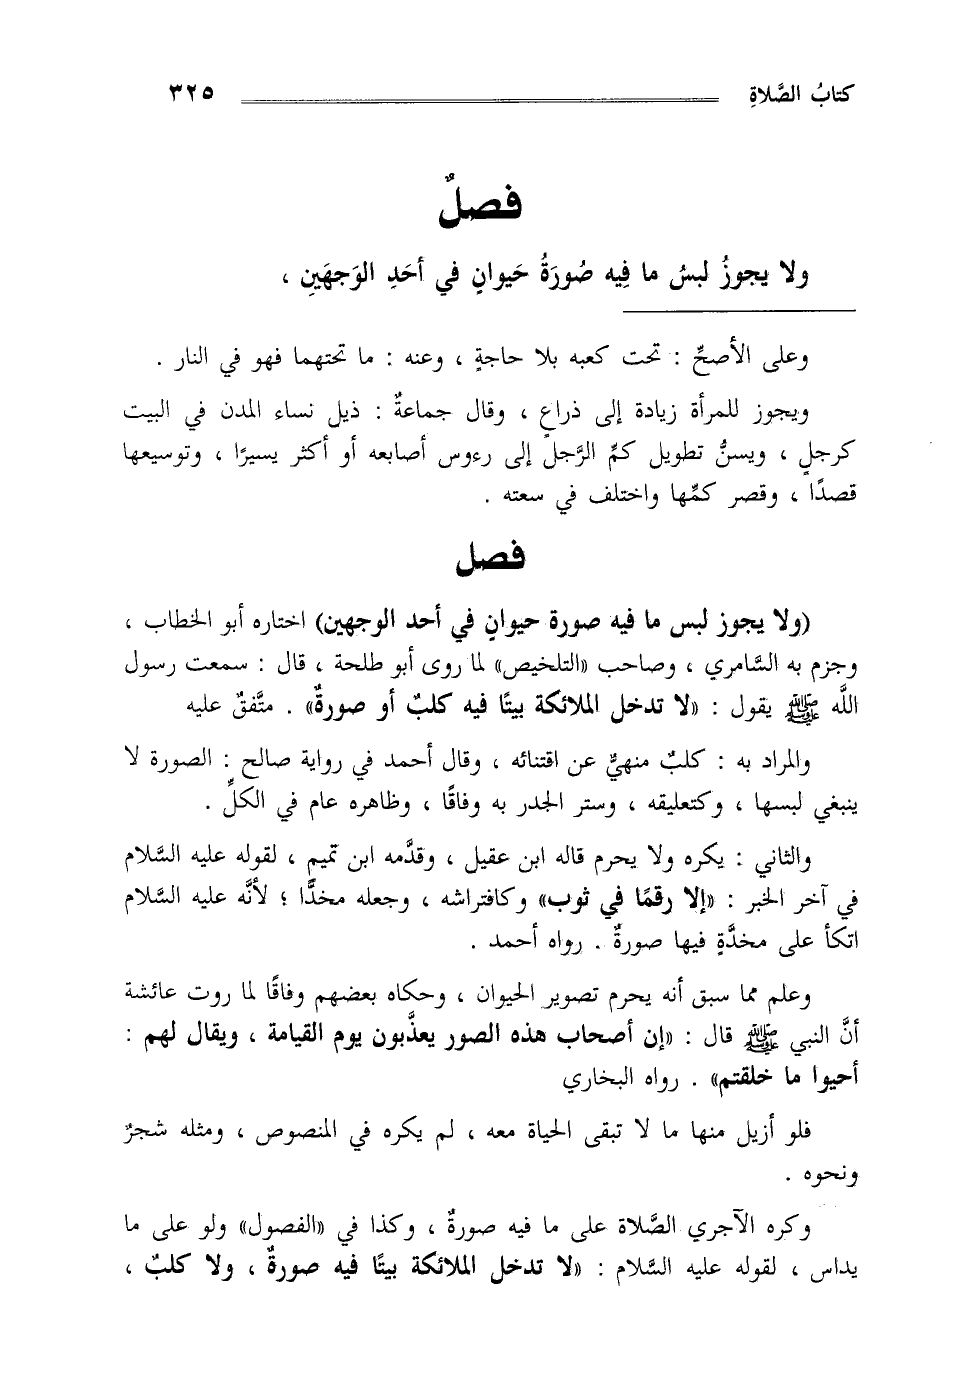 كتابُ الصَّلاةِ ٣٢٥
فصلٌ
ولا يجوزُ لبسُ ما فِيه صُورَةُ حَيوانٍ في أحَدِ الوَجهَينِ ،
وعلى الأصحِّ : تحت كعبه بلا حاجةٍ ، وعنه : ما تحتهما فهو في النار .
ويجوز للمرأة زيادة إلى ذراعٍ ، وقال جماعةٌ : ذيل نساء المدن في البيت
كرجلٍ ، ويسنُّ تطويل كمِّ الرَّجل إلى رءوس أصابعه أو أكثر يسيرًا ، وتوسيعها
قصدًا ، وقصر كمِّها واختلف في سعته .
فصل
(ولا يجوز لبس ما فيه صورة حيوانٍ في أحد الوجهين) اختاره أبو الخطاب ،
وجزم به السَّامري ، وصاحب «التلخيص» لما روى أبو طلحة ، قال : سمعت رسول
اللَّه ﷺ يقول : «لا تدخل الملائكة بيتًا فيه كلبٌ أو صورةٌ» . متَّفقٌ عليه
والمراد به : كلبٌ منهيٌّ عن اقتنائه ، وقال أحمد في رواية صالح : الصورة لا
ينبغي لبسها ، وكتعليقه ، وستر الجدر به وفاقًا ، وظاهره عام في الكلِّ .
والثاني : يكره ولا يحرم قاله ابن عقيل ، وقدَّمه ابن تميم ، لقوله عليه السَّلام
في آخر الخبر : «إلا رقمًا في ثوب» وكافتراشه ، وجعله مخدًّا ؛ لأنَّه عليه السَّلام
اتكأ على مخدَّةٍ فيها صورةٌ . رواه أحمد .
وعلم مما سبق أنه يحرم تصوير الحيوان ، وحكاه بعضهم وفاقًا لما روت عائشة
أنَّ النبي ﷺ قال : «إن أصحاب هذه الصور يعذَّبون يوم القيامة ، ويقال لهم :
أحيوا ما خلقتم» . رواه البخاري
فلو أزيل منها ما لا تبقى الحياة معه ، لم يكره في المنصوص ، ومثله شجرٌ
ونحوه .
وكره الآجري الصَّلاة على ما فيه صورةٌ ، وكذا في «الفصول» ولو على ما
يداس ، لقوله عليه السَّلام : «لا تدخل الملائكة بيتًا فيه صورةٌ ، ولا كلبٌ ،